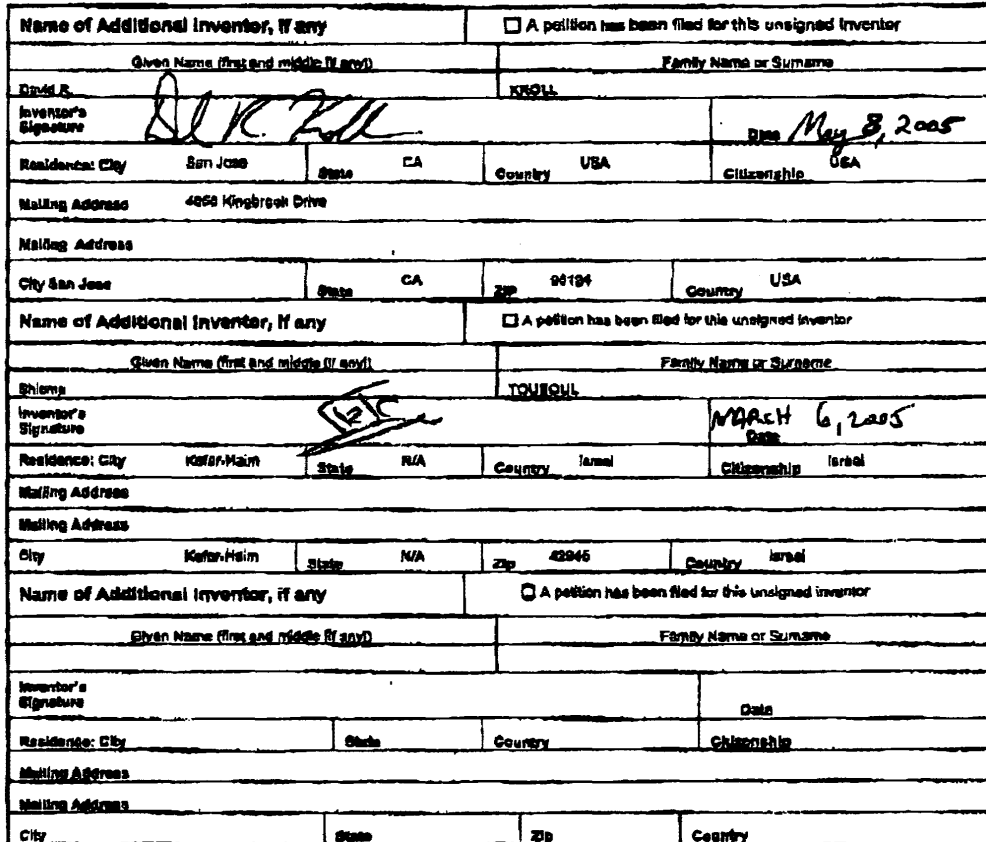 Name of Additional Inventor, if any ☐ A petition has been filed for this unsigned inventor
Given Name (first and middle (if any)) Family Name or Surname
David R. KROLL
Inventor's Signature Date May 8, 2005
Residence: City San Jose State CA Country USA Citizenship USA
Mailing Address Drive
Mailing Address
City San Jose State CA ZIP Country USA
Name of Additional Inventor, if any ☐ A petition has been filed for this unsigned inventor
Given Name (first and middle (if any)) Family Name or Surname
Inventor's Signature MARCH 6, 2005 Date
Residence: City State N/A Country Israel Citizenship Israel
Mailing Address
Mailing Address
City State N/A Zip Country Israel
Name of Additional Inventor, if any ☐ A petition has been filed for this unsigned inventor
Given Name (first and middle (if any)) Family Name or Surname
Inventor's Signature Date
Residence: City State Country Citizenship
Mailing Address
Mailing Address
City State Zip Country